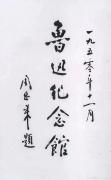 一九五〇年十一月
魯迅纪念館
周恩来題